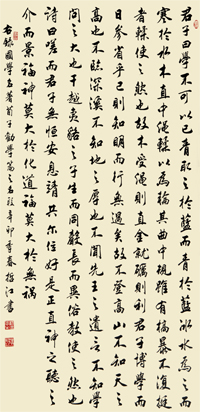 君子曰學不可以已青取之於藍而青於藍冰水為之而
寒於水木直中繩輮以為輪其曲中規雖有槁暴不復挺
者輮使之然也故木受繩則直金就礪則利君子博學而
日參省乎己則知明而行無過矣故不登高山不知天之
高也不臨深溪不知地之厚也不聞先王之遺言不知學
問之大也干越夷貉之子生而同聲長而異俗教使之然也
詩曰嗟爾君子無恒安息靖共尔位好是正直神之聽之
介尔景福神莫大於化道福莫大於無禍
右録國學名著荀子勸學篇之名段辛卯季春江書